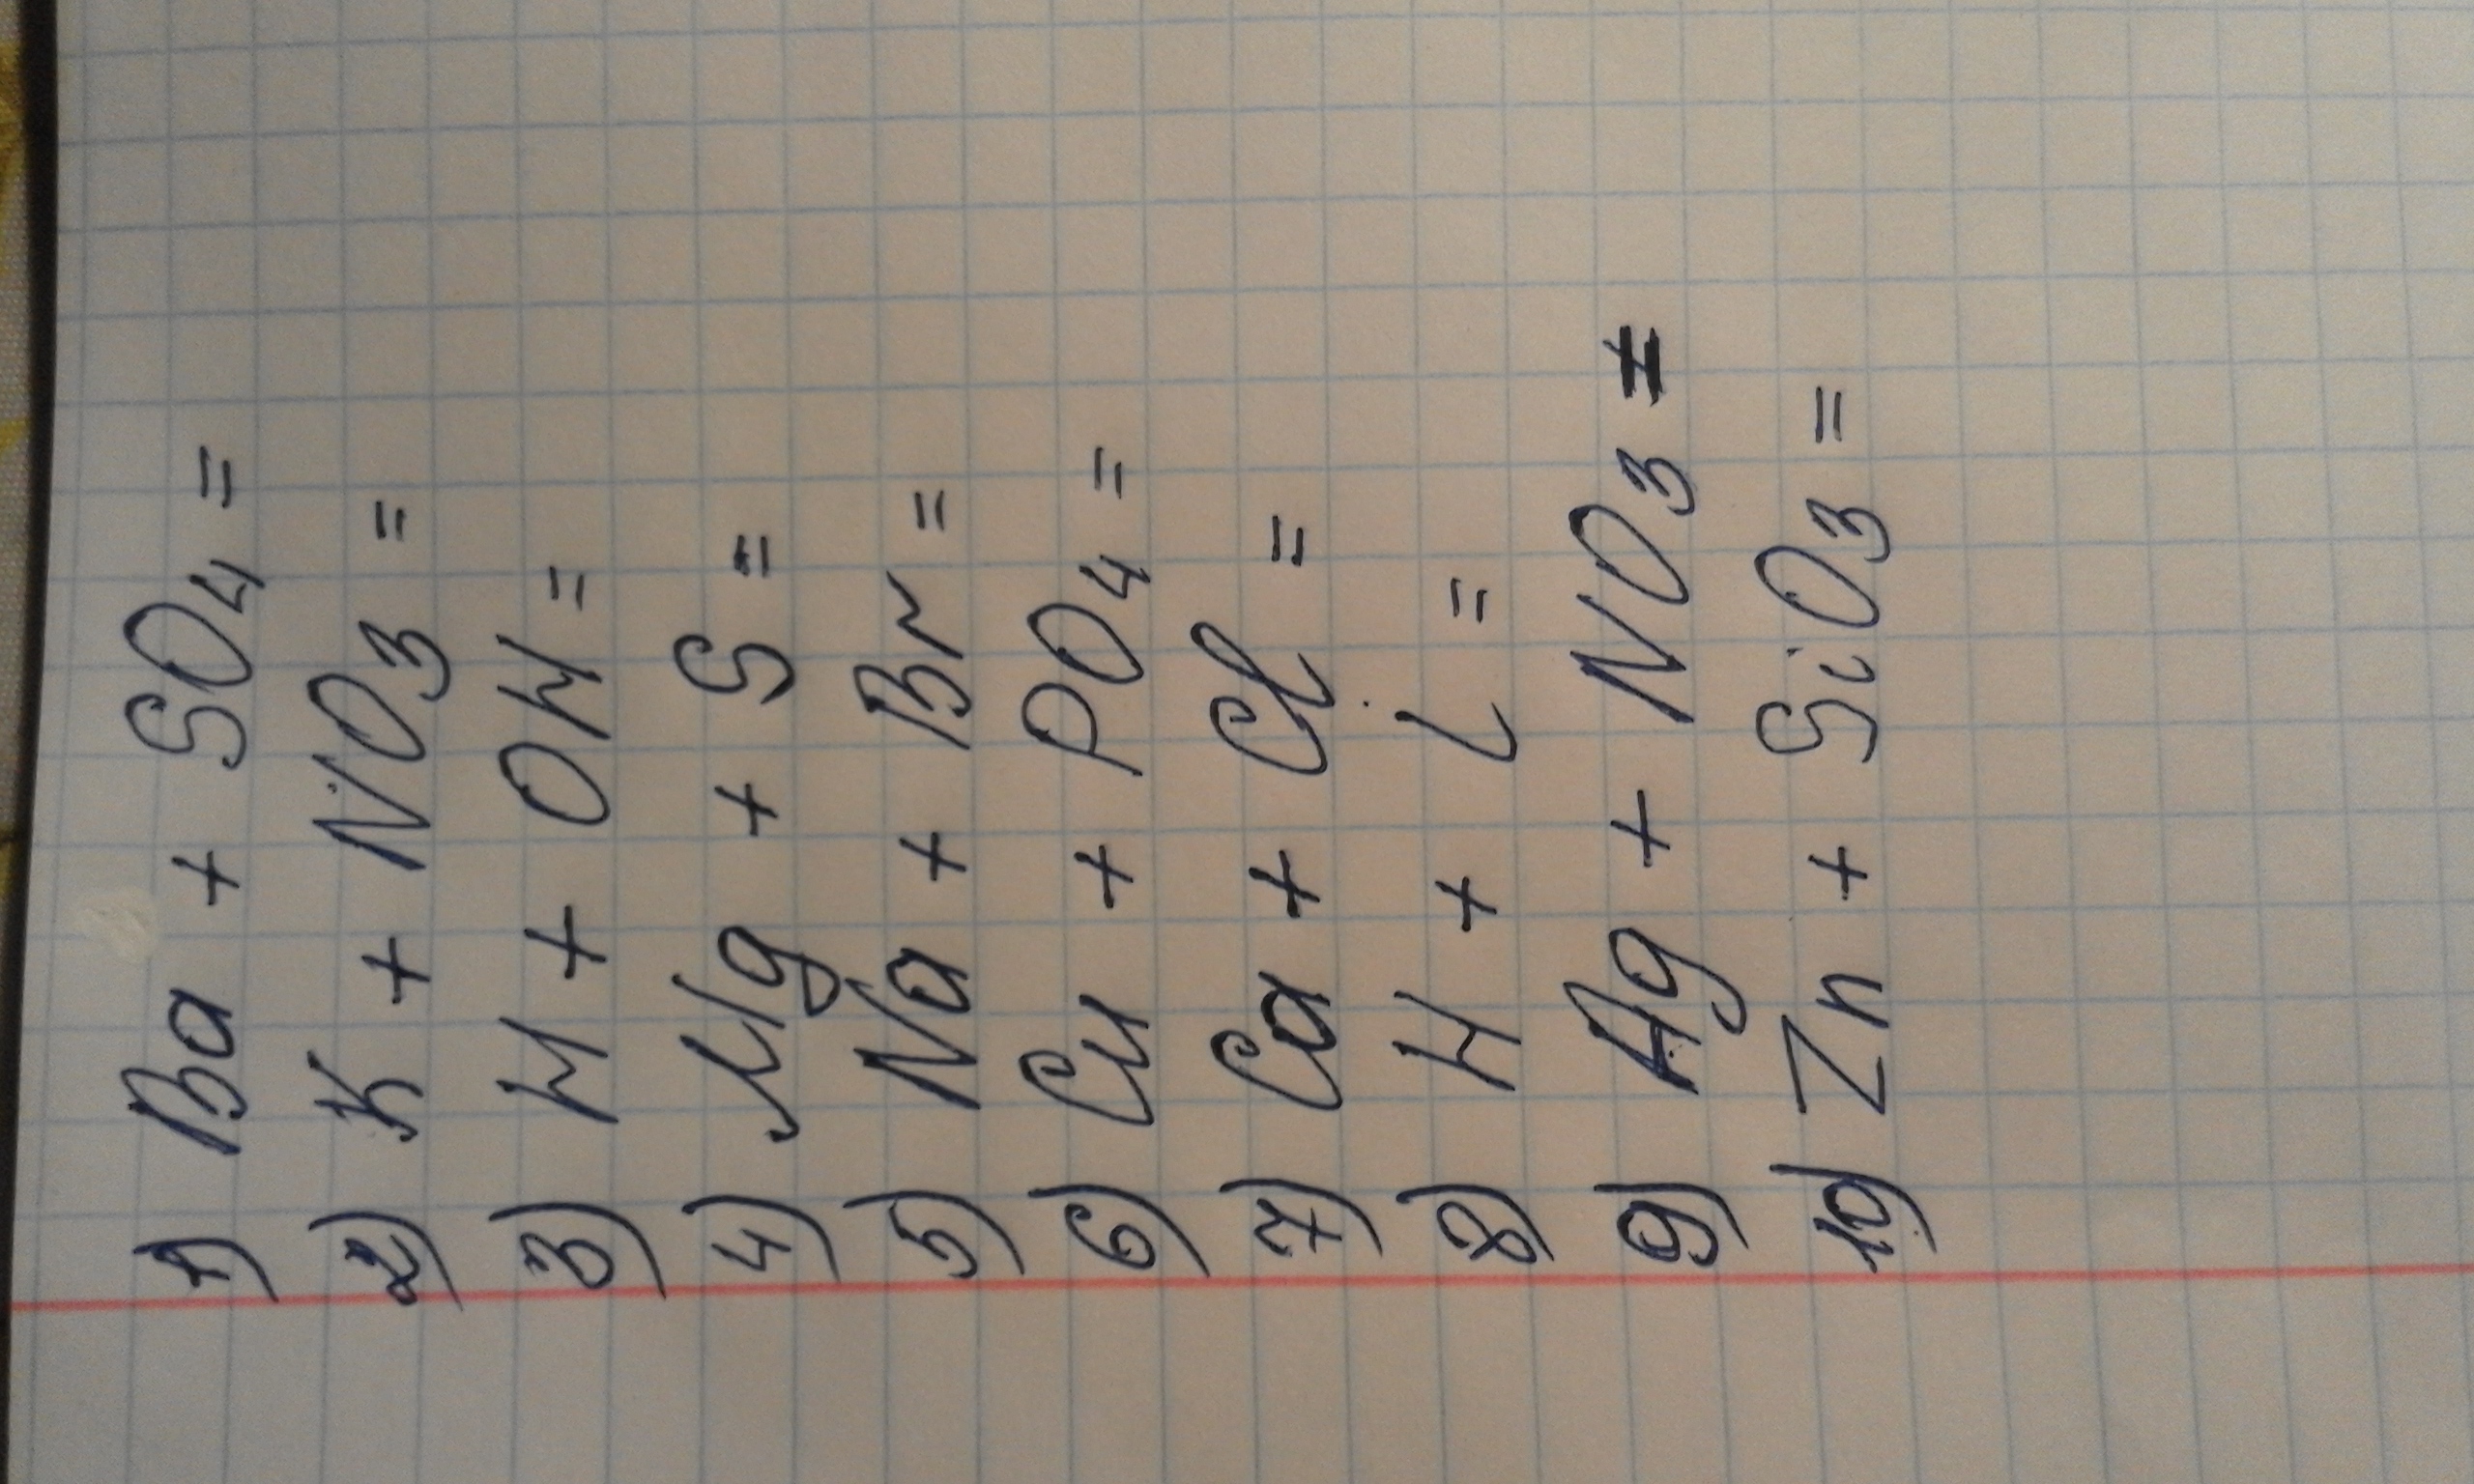 1) Ba + SO4 =
2) K + NO3 =
3) H + OH =
4) Mg + S =
5) Na + Br =
6) Cu + PO4 =
7) Ca + Cl =
8) H + i =
9) Ag + NO3 =
10) Zn + SiO3 =